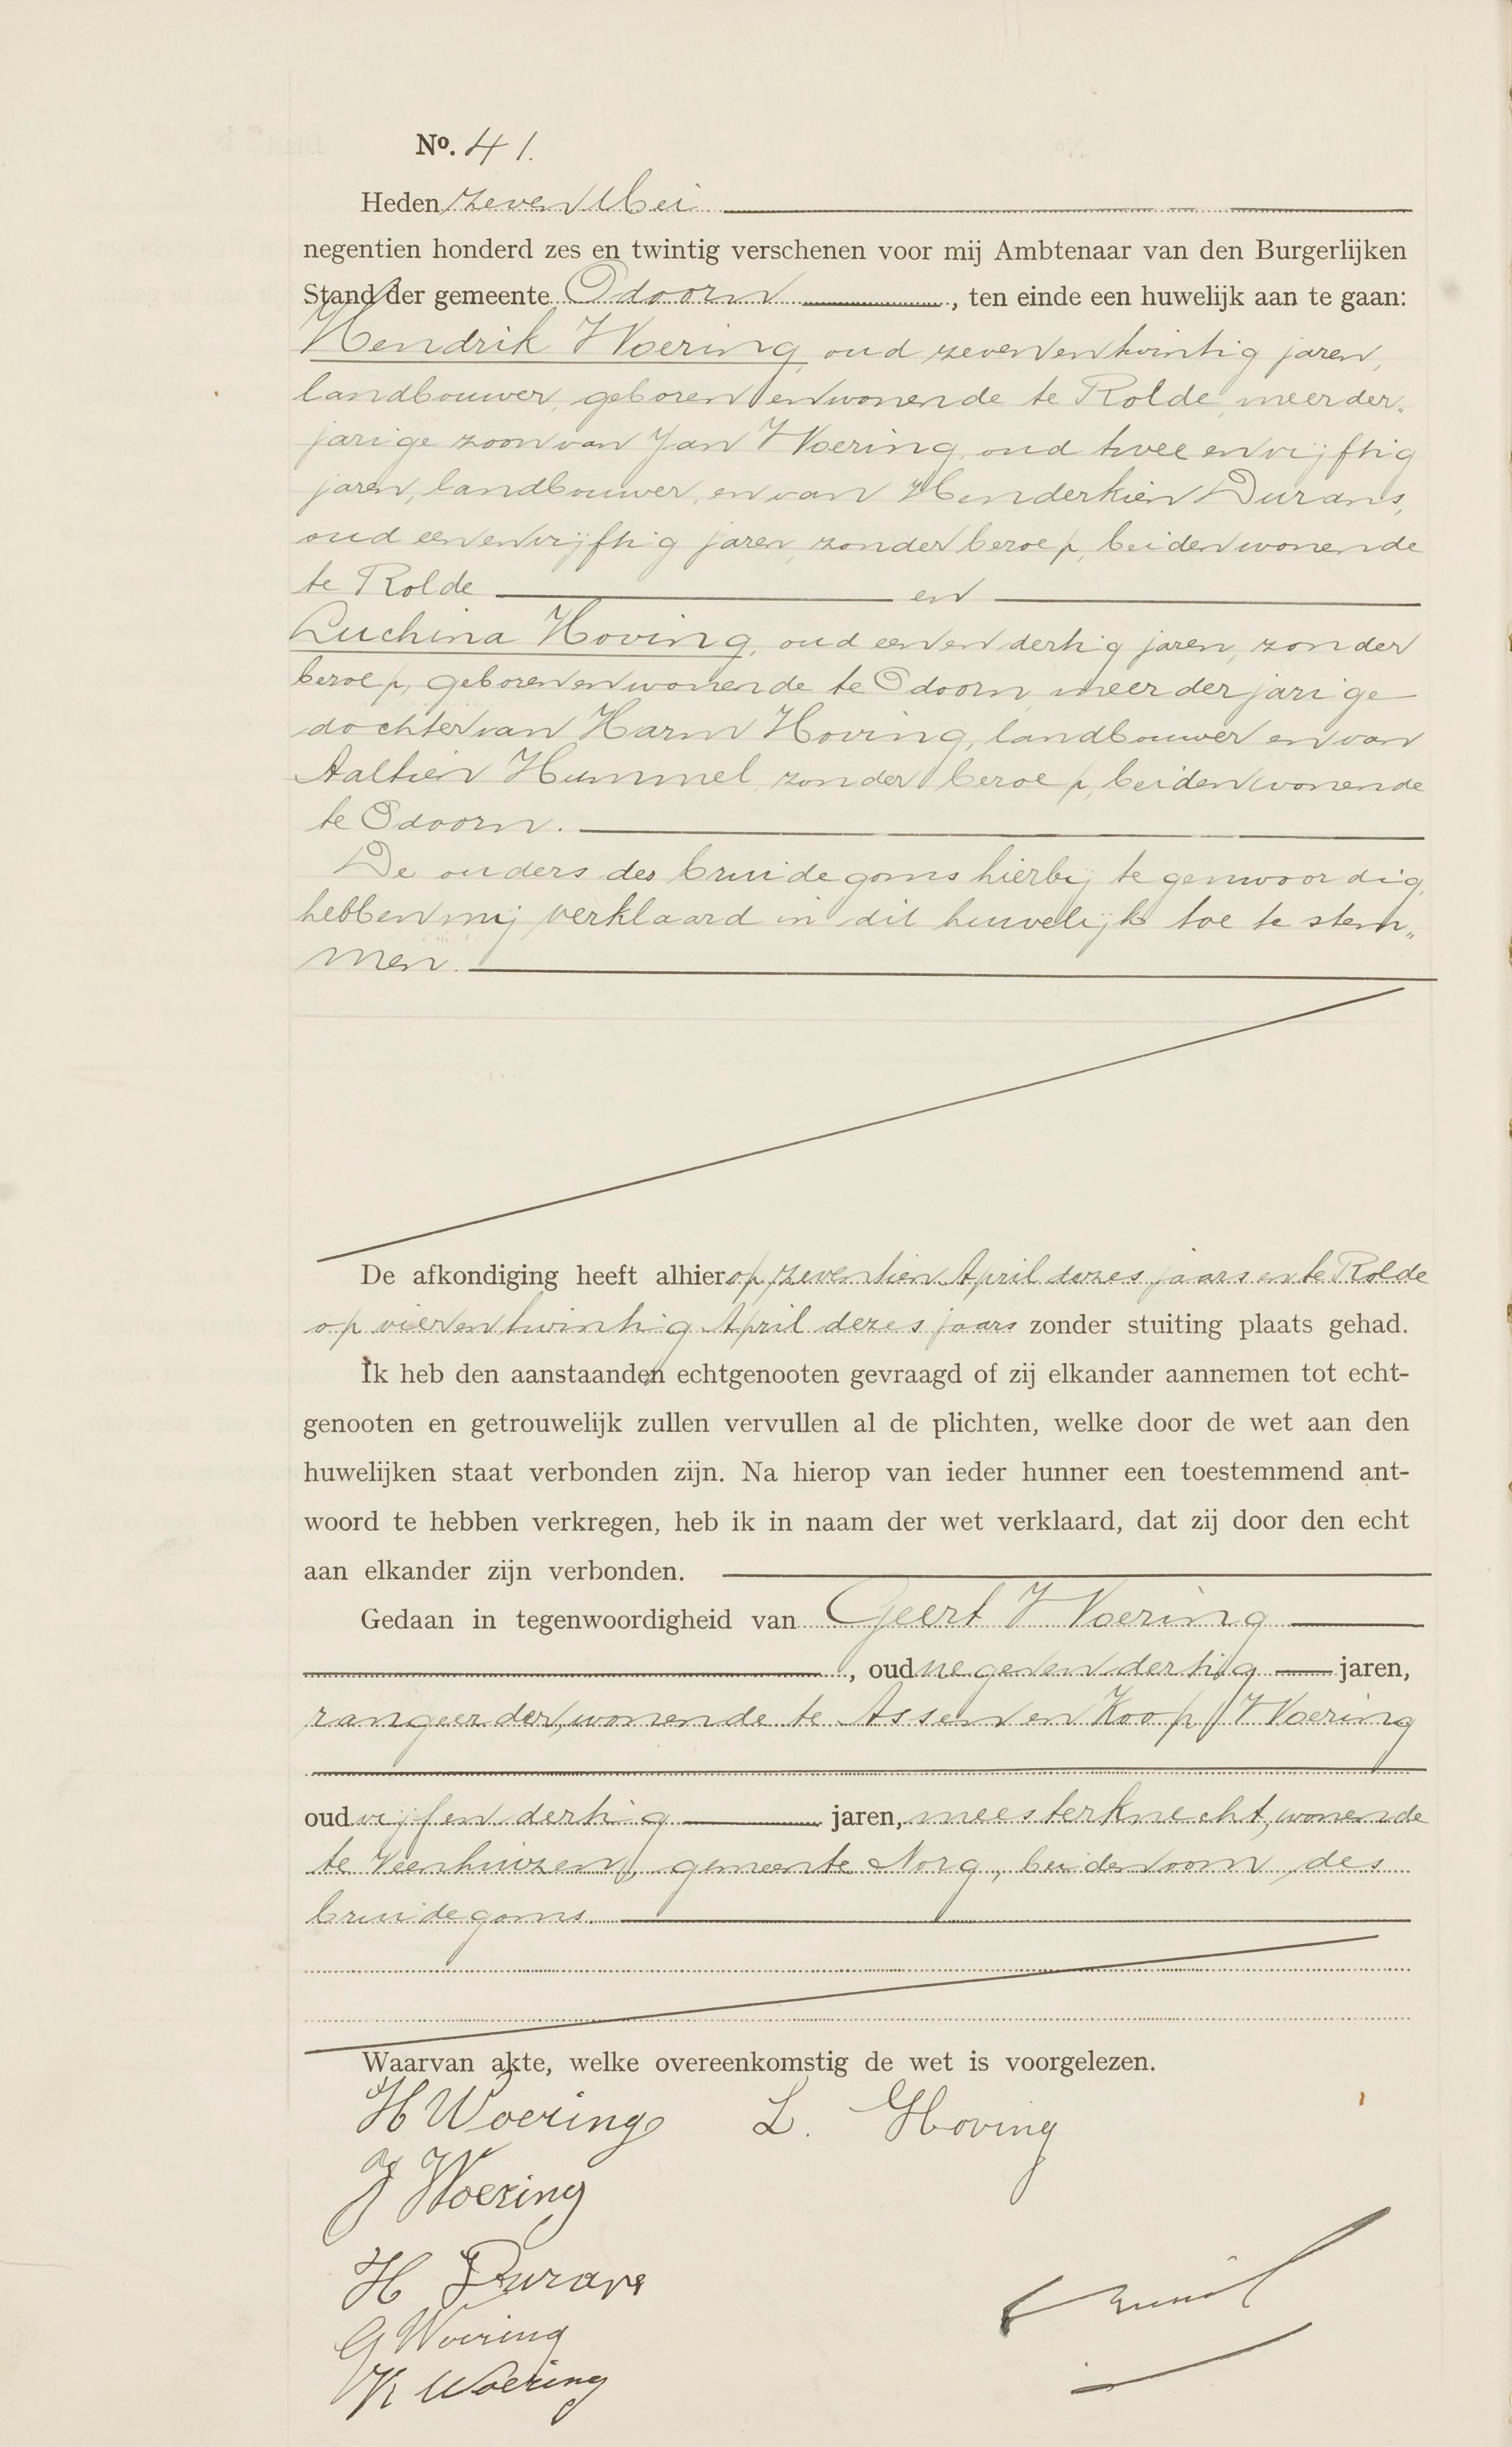 No. 41.
Heden zeven Mei
negentien honderd zes en twintig verschenen voor mij Ambtenaar van den Burgerlijken
Stand der gemeente Odoorn, ten einde een huwelijk aan te gaan:
Hendrik Woering, oud zevenentwintig jaren,
landbouwer, geboren en wonende te Rolde, meerder-
jarige zoon van Jan Woering, oud twee en vijftig
jaren, landbouwer, en van Henderkien Durans,
oud eenenvijftig jaren, zonder beroep, beiden wonende
te Rolde en
Luchina Hoving, oud eenendertig jaren, zonder
beroep, geboren en wonende te Odoorn, meerderjarige
dochter van Harm Hoving, landbouwer en van
Aaltien Hummel zonder beroep, beiden wonende
te Odoorn.
De ouders des bruidegoms hierbij tegenwoordig,
hebben mij verklaard in dit huwelijk toe te stem„
men.
De afkondiging heeft alhier op zeventien April dezes jaars en te Rolde
op vierentwintig April dezes jaars zonder stuiting plaats gehad.
Ik heb den aanstaanden echtgenooten gevraagd of zij elkander aannemen tot echt-
genooten en getrouwelijk zullen vervullen al de plichten, welke door de wet aan den
huwelijken staat verbonden zijn. Na hierop van ieder hunner een toestemmend ant-
woord te hebben verkregen, heb ik in naam der wet verklaard, dat zij door den echt
aan elkander zijn verbonden.
Gedaan in tegenwoordigheid van Geert Woering
, oud negenendertig jaren,
rangeerder, wonende te Assen en Koop Woering
oud vijfendertig jaren, meesterknecht, wonende
te Veenhuizen, gemeente Norg, beiden oom des
bruidegoms.
Waarvan akte, welke overeenkomstig de wet is voorgelezen.
H Woering L. Hoving
J Woering
H Durans
G Woering
K Woering